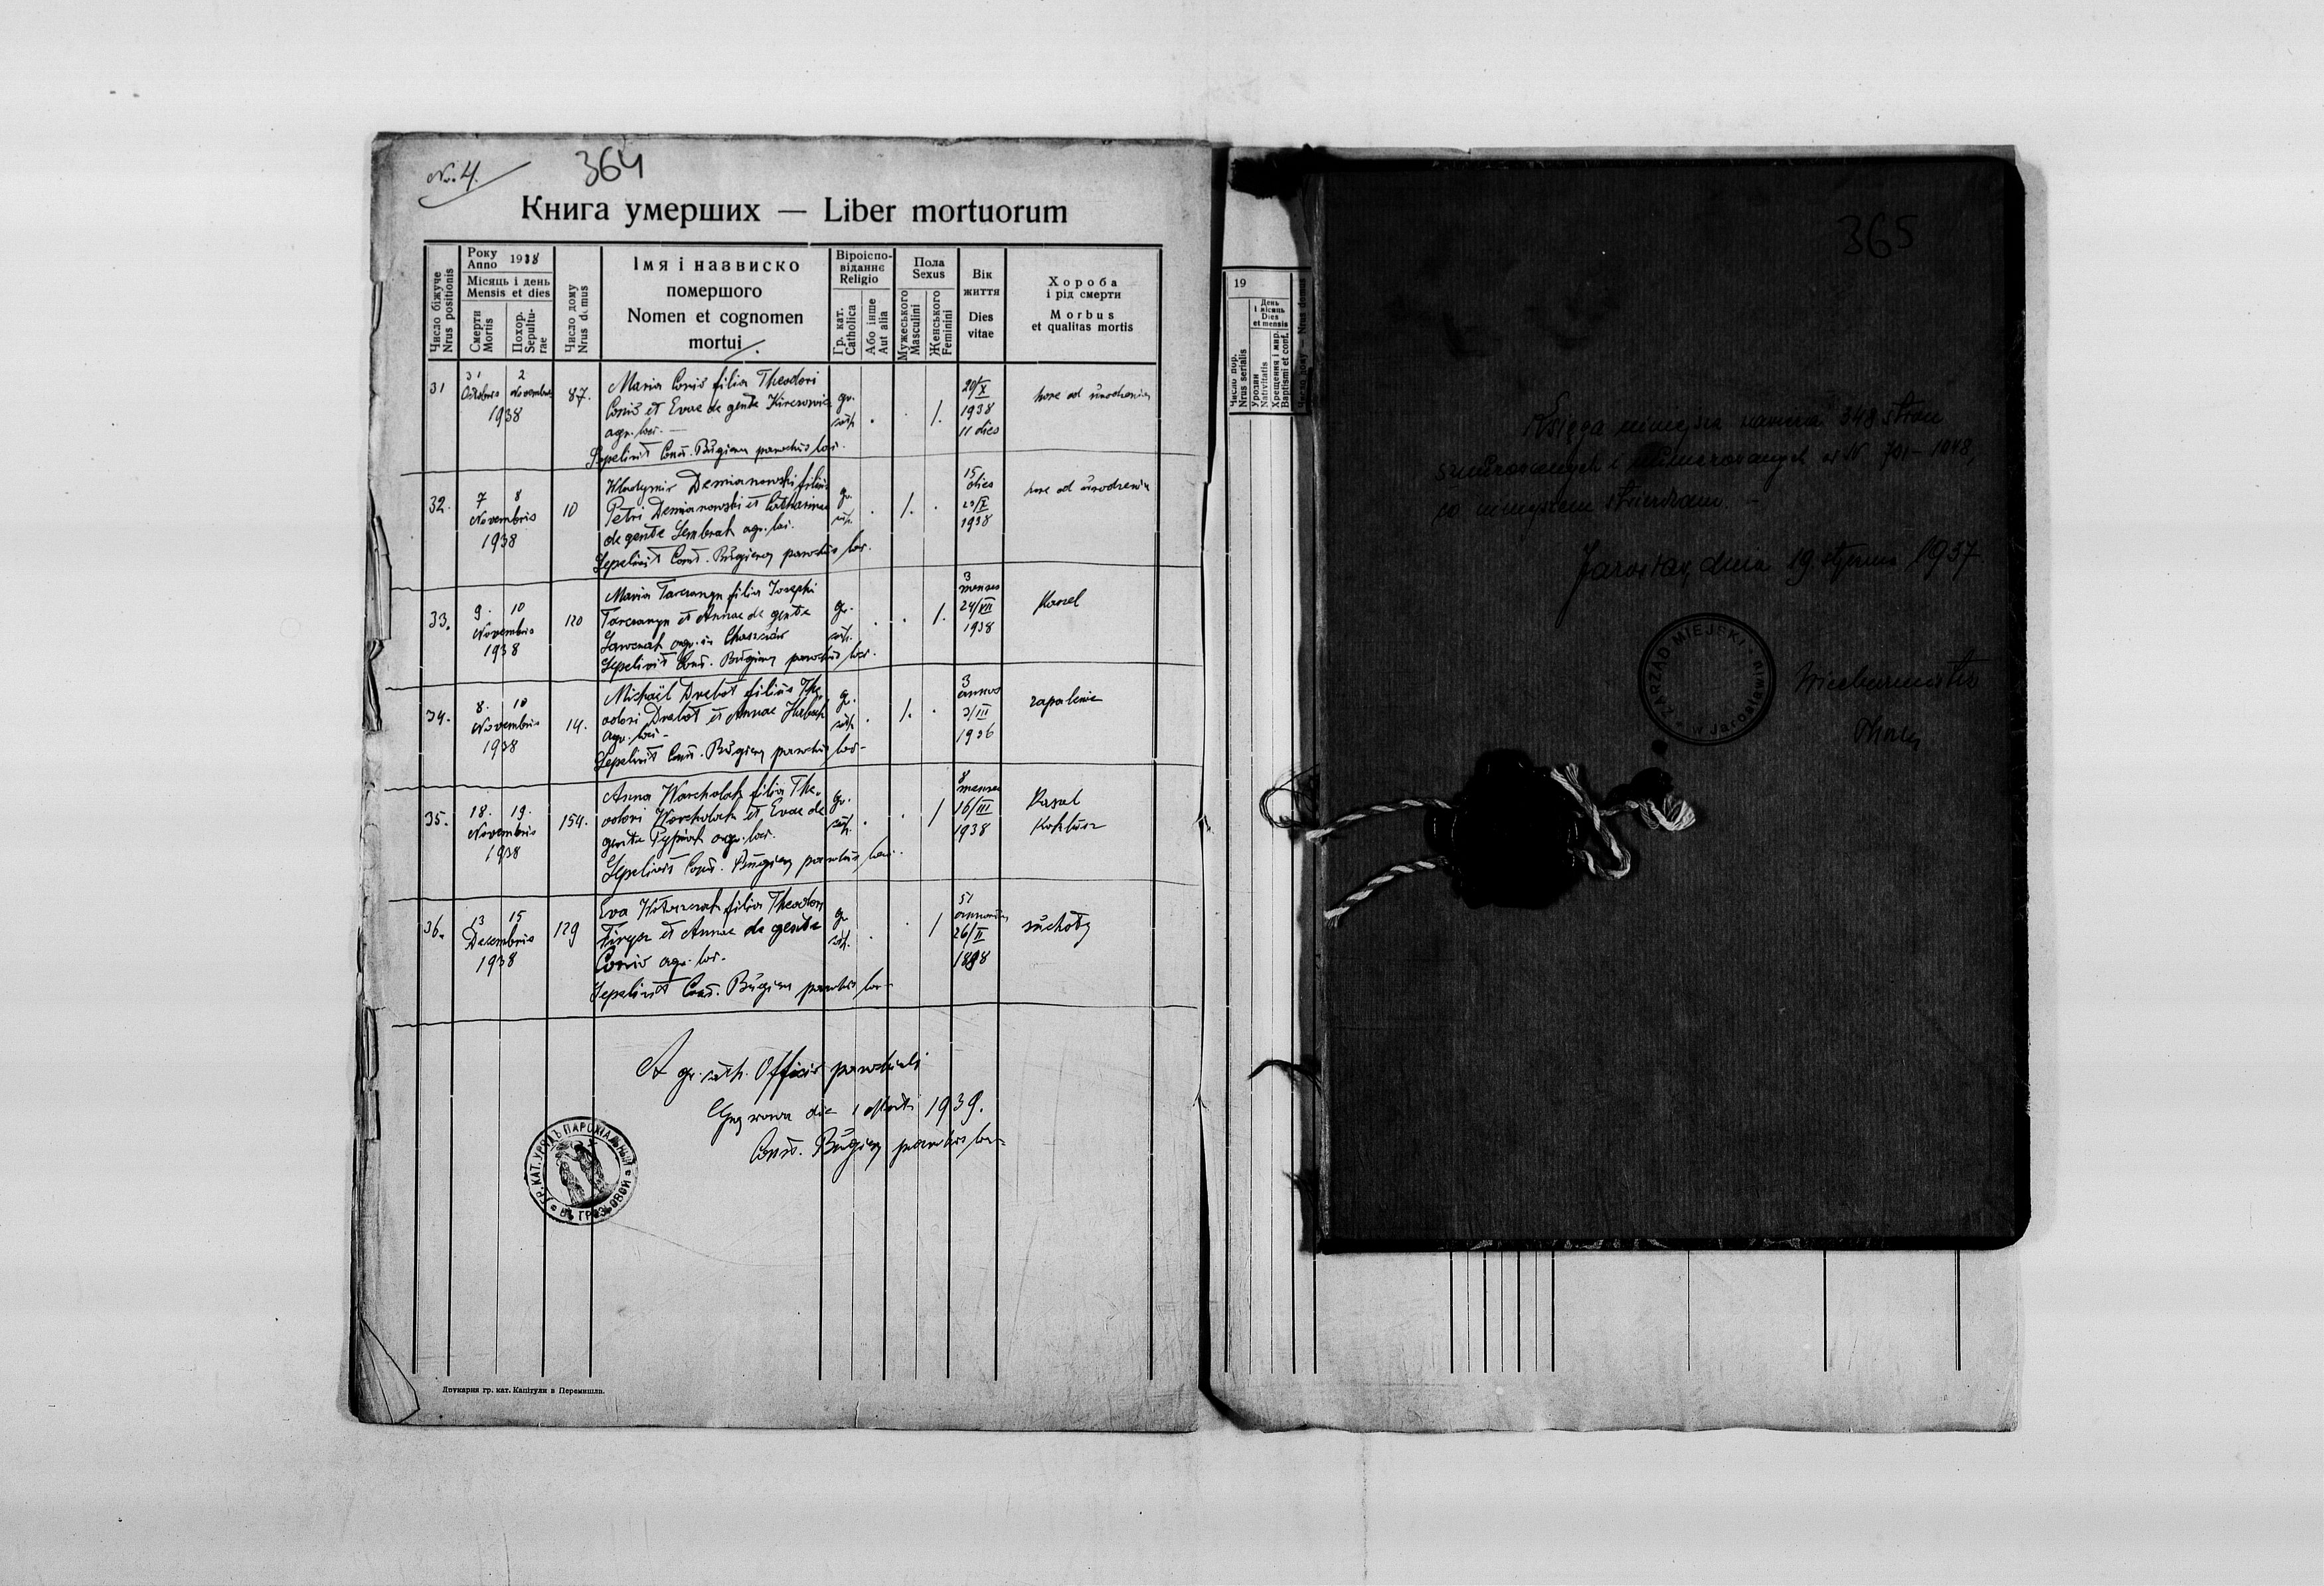 No. 4.
364
Книга умерших — Liber mortuorum
Число біжуче
Nrus positionis
Року
Anno 1938
Місяць і день
Mensis et dies
Смерти
Mortis
Похор.
Sepultu-
rae
Число дому
Nrus domus
Імя і назвиско
помершого
Nomen et cognomen
mortui
Віроіспо-
віданнє
Religio
Гр. кат.
Catholica
Або інше
Aut alia
Пола
Sexus
Мужеського
Masculini
Женського
Feminini
Вік
життя
Dies
vitae
Хороба
і рід смерти
Morbus
et qualitas mortis
31
31 2
Octobris Novembris
1938
87.
Maria Conio filia Theodori
Conio et Evae de gente
agr. loci.
Sepelivit Const. Bugiera parochus loci.
gr.
cath.
1.
20/X
1938
11 dies
32.
7 8
Novembris
1938
10
Wlodymir Demianowski filius
Petri Demianowski et Catharinae
de gente Sembrat agr. loci.
Sepelivit Const. Bugiera parochus loci.
gr.
cath.
1.
15
dies
23/X
1938
33.
9. 10
Novembris
1938
120
Maria filia Josephi
et Annae de gente
agr. in
Sepelivit Const. Bugiera parochus loci.
gr.
cath.
1.
3
menses
24/VII
1938
Kaszel
34.
8. 10
Novembris
1938
14.
Michaël Drebot filius The-
odori Drebot et Annae
agr. loci
Sepelivit Const. Bugiera parochus loci
gr.
cath.
1.
3
annos
3/III
1936
zapalenie
35.
18. 19.
Novembris
1938
154.
Anna Warcholak filia The-
odori Warcholak et Evae de
gente agr. loci.
Sepelivit Const. Bugiera parochus loci.
gr.
cath.
1
8
menses
16/III
1938
Kaszel
Koklusz
36.
13 15
Decembris
1938
129
Eva filia Theodori
et Annae de gente
Conio agr. loci.
Sepelivit Const. Bugiera parochus loci
gr.
cath.
1
51
26/II
1898
suchoty
A gr. cath. Officio parochiali
die 1 1939.
Const. Bugiera parochus loci
ГР. КАТ. УРЯДЪ ПАРОХІАЛЬНЫЙ
Друкарня гр. кат. Капітули в Перемишли.
19
День
і місяць
Dies
et mensis
Число пор.
Nrus serialis
Уродин
Nativitatis
Хрещення і мир.
Baptismi et conf.
Число дому — Nrus domus
365
Księga niniejsza zawiera 348 stron
sznurowanych i numerowanych od N 701-1048,
co niniejszem stwierdzam. -
Jarosław dnia 19 stycznia 1937
ZARZĄD MIEJSKI
w Jarosławiu
Wiceburmistrz